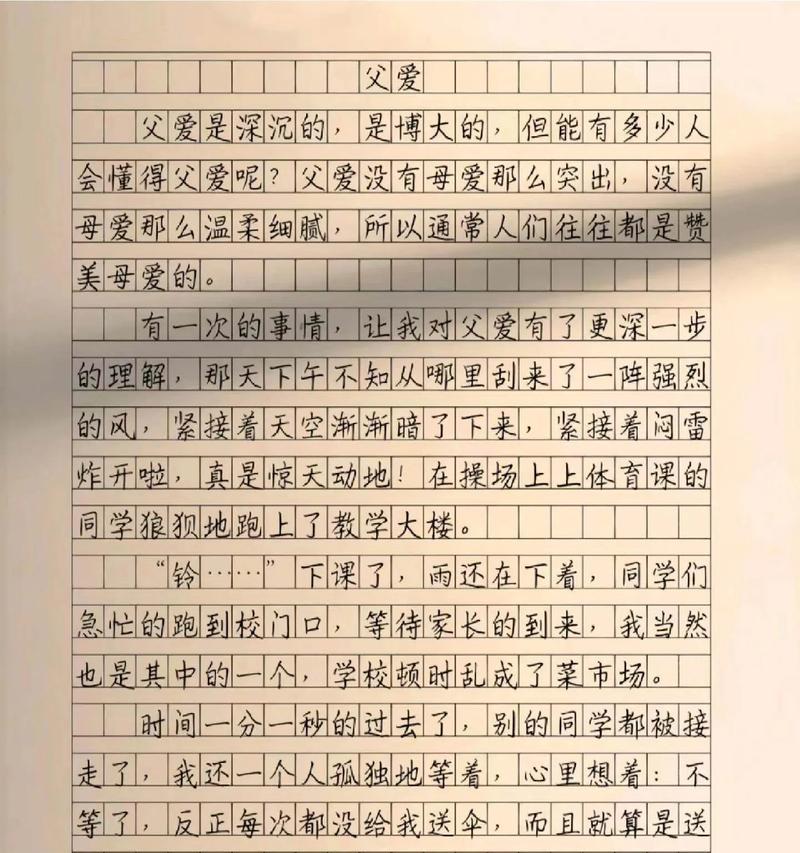 父爱
父爱是深沉的，是博大的，但能有多少人
会懂得父爱呢？父爱没有母爱那么突出，没有
母爱那么温柔细腻，所以通常人们往往都是赞
美母爱的。
有一次的事情，让我对父爱有了更深一步
的理解，那天下午不知从哪里刮来了一阵强烈
的风，紧接着天空渐渐暗了下来，紧接着闷雷
炸开啦，真是惊天动地！在操场上上体育课的
同学狼狈地跑上了教学大楼。
“铃……”下课了，雨还在下着，同学们
急忙的跑到校门口，等待家长的到来，我当然
也是其中的一个，学校顿时乱成了菜市场。
时间一分一秒的过去了，别的同学都被接
走了，我还一个人孤独地等着，心里想着：不
等了，反正每次都没给我送伞，而且就算是送